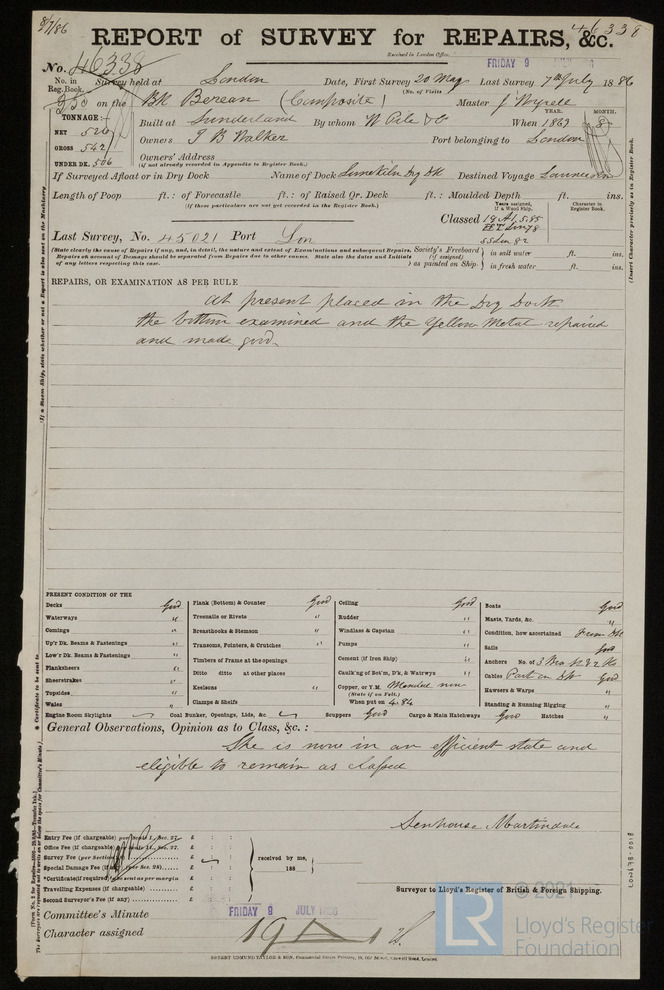 8/7/86
46338
REPORT of SURVEY for REPAIRS, &c.
Received in London Office,
FRIDAY 9 JULY
No. 46338
No. in Reg. Book.
Survey held at London Date, First Survey 20 May Last Survey 7th July 1886
(No. of Visits)
250 on the Bk Berean (Composite) Master J Wyrele
TONNAGE:—
NET 526
GROSS 542
UNDER DK. 506
Built at Sunderland By whom W Pile & Co When 1869 8
YEAR. MONTH.
Owners T B Walker Port belonging to London
Owners' Address
(if not already recorded in Appendix to Register Book.)
If Surveyed Afloat or in Dry Dock Name of Dock Limekiln Dry Dk Destined Voyage Launceston
Length of Poop ft.: of Forecastle ft.: of Raised Qr. Deck ft.: Moulded Depth ft. ins.
(If these particulars are not yet recorded in the Register Book.)
Years assigned, if a Wood Ship.
Character in Register Book.
Classed 19 A1, 5.85
SS Lon 82
Last Survey, No. 45021 Port Lon
(State clearly the cause of Repairs if any, and, in detail, the nature and extent of Examinations and subsequent Repairs.
Repairs on account of Damage should be separated from Repairs due to other causes. State also the dates and Initials
of any letters respecting this case.
Society's Freeboard (if assigned) as painted on Ship
in salt water ft. ins.
in fresh water ft. ins.
REPAIRS, OR EXAMINATION AS PER RULE
At present placed in the Dry Dock
the bottom examined and the Yellow Metal repaired
and made good.
PRESENT CONDITION OF THE
Decks Good
Waterways "
Comings "
Up'r Dk. Beams & Fastenings "
Low'r Dk. Beams & Fastenings "
Planksheers "
Sheerstrakes "
Topsides "
Wales "
Plank (Bottom) & Counter Good
Treenails or Rivets "
Breasthooks & Stemson "
Transoms, Pointers, & Crutches "
Timbers of Frame at the openings
Ditto ditto at other places
Keelsons "
Clamps & Shelfs
Ceiling Good
Rudder "
Windlass & Capstan "
Pumps "
Cement (if Iron Ship) "
Caulk'ng of Bot'm, D'k, & Watrwys "
Copper, or Y.M.
(State if on Felt.)
When put on 4.84
Boats Good
Masts, Yards, &c. "
Condition, how ascertained From Dk
Sails Good
Anchors No. of
Cables Part on Dk Good
Hawsers & Warps "
Standing & Running Rigging "
Engine Room Skylights Coal Bunker, Openings, Lids, &c. Scuppers Good Cargo & Main Hatchways Good Hatches "
General Observations, Opinion as to Class, &c.:
She is now in an efficient state and
eligible to remain as classed
Senhouse Martindale
Entry Fee (if chargeable) per Scale I., Sec. 27. £ : :
Office Fee (if chargeable) per Scale II., Sec. 27. £ : :
Survey Fee (per Section £ : :
Special Damage Fee (if any) (per Sec. 28) £ : :
*Certificate (if required) to be sent as per margin £ : :
Travelling Expenses (if chargeable) £ : :
Second Surveyor's Fee (if any) £ : :
received by me,
188
Surveyor to Lloyd's Register of British & Foreign Shipping.
Committee's Minute FRIDAY 9 JULY 1886
Character assigned 19 A 1
ROBERT EDMUND TAYLOR & SON,
LR
© 2021
Lloyd's Register
Foundation